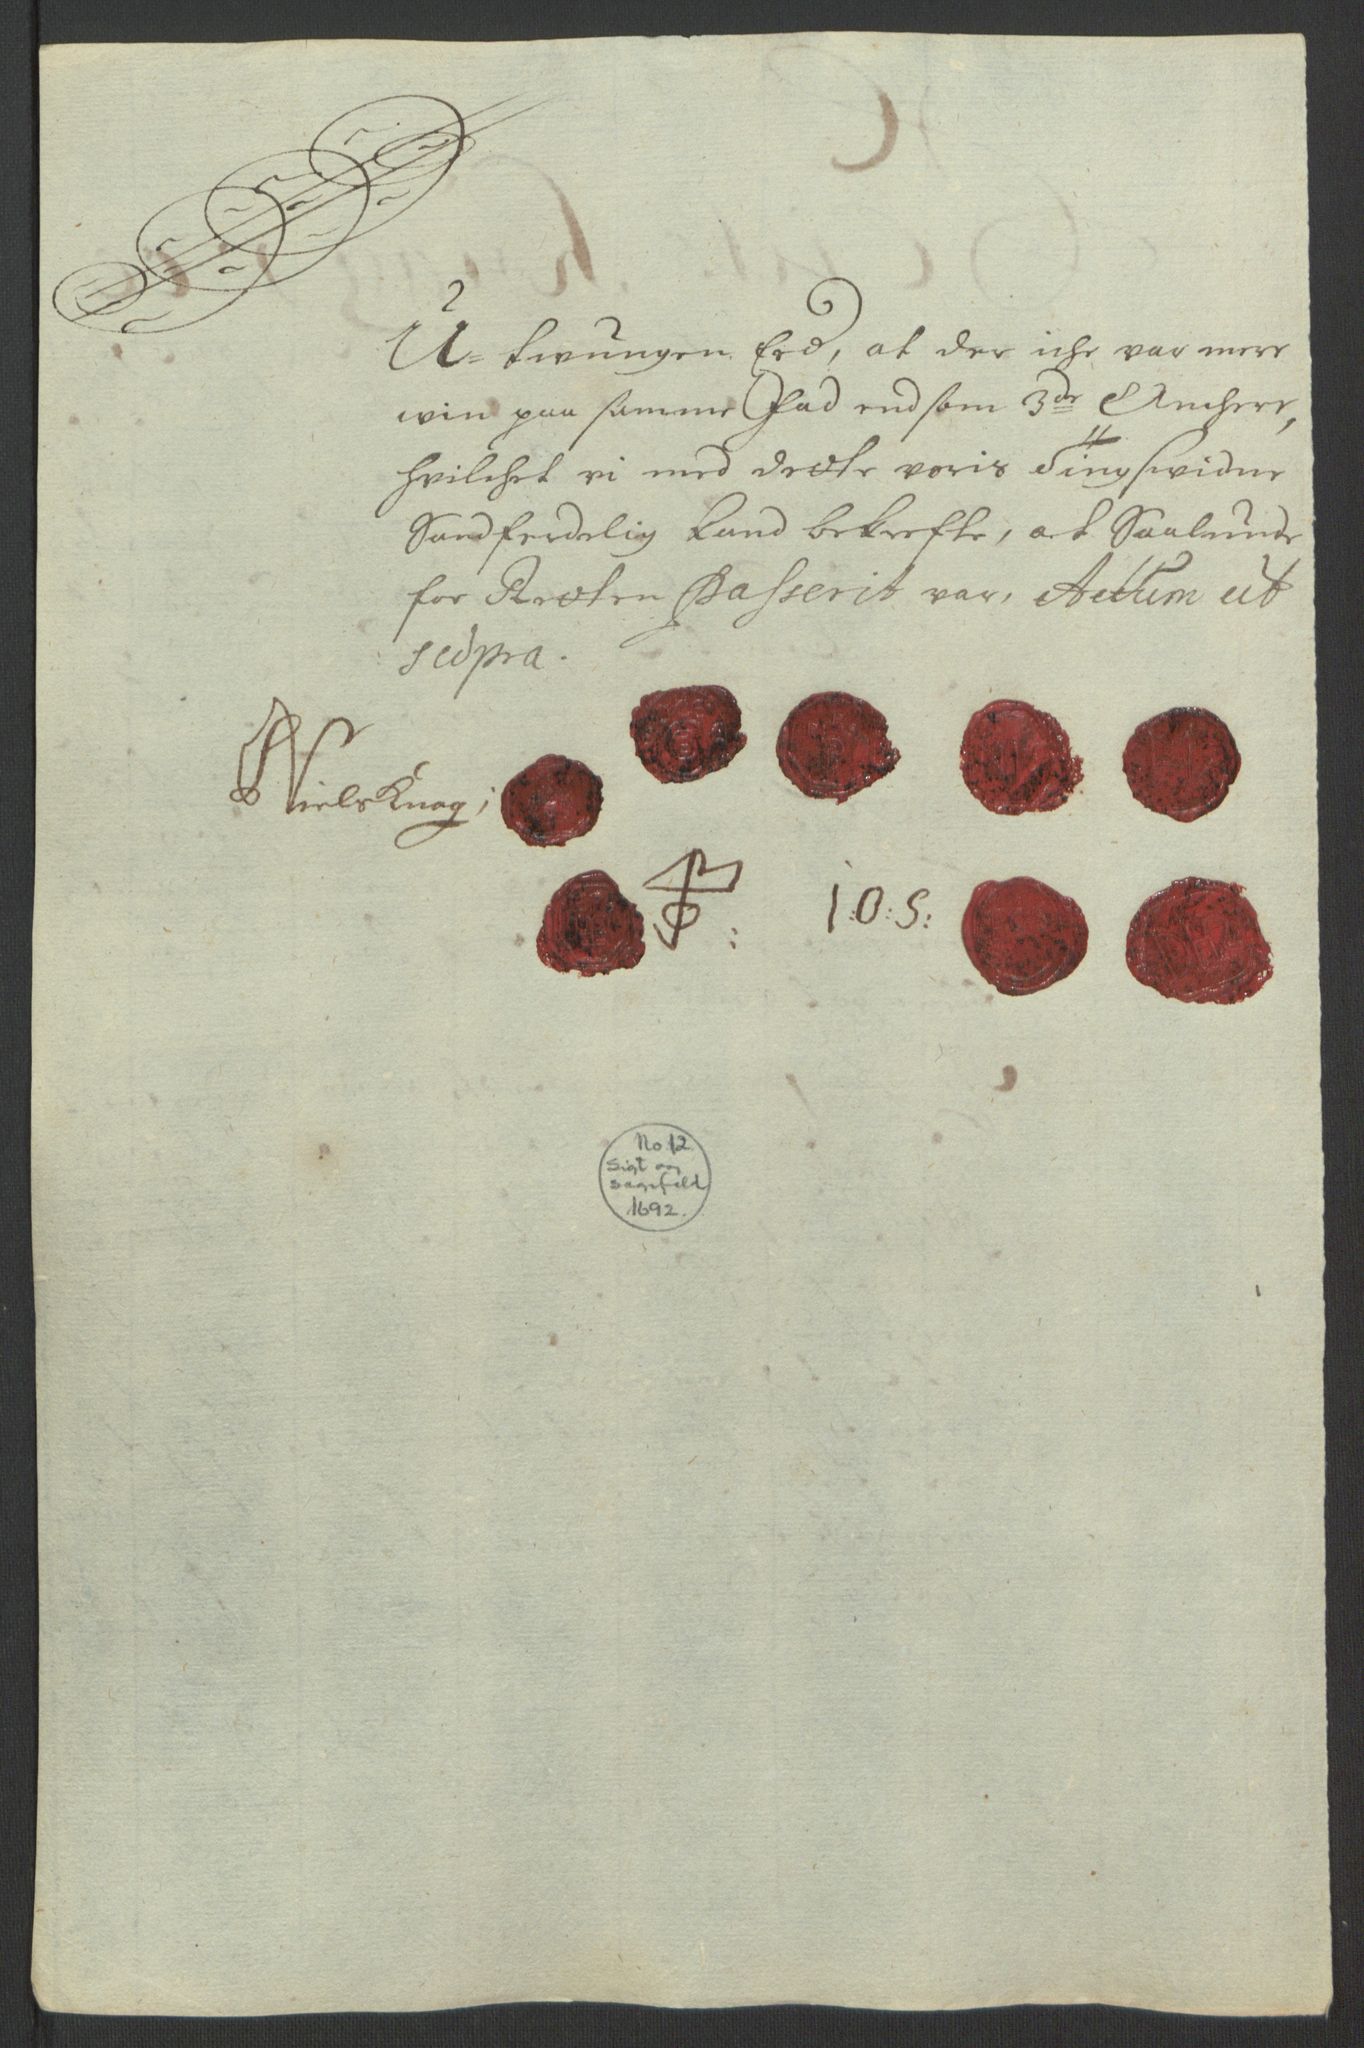 U-twungen Eed, at der iche var mere
win paa samme Fad end som 3de Anchere,
hvilchet vi med dette voris Tingswidne
Sandferdelig kand bekrefte, at Saalunde
for Retten Passerit var, Actum ut
supra.
Niels Knag;
I:O:S:
No 12.
Sigt og
sagefald
1692.